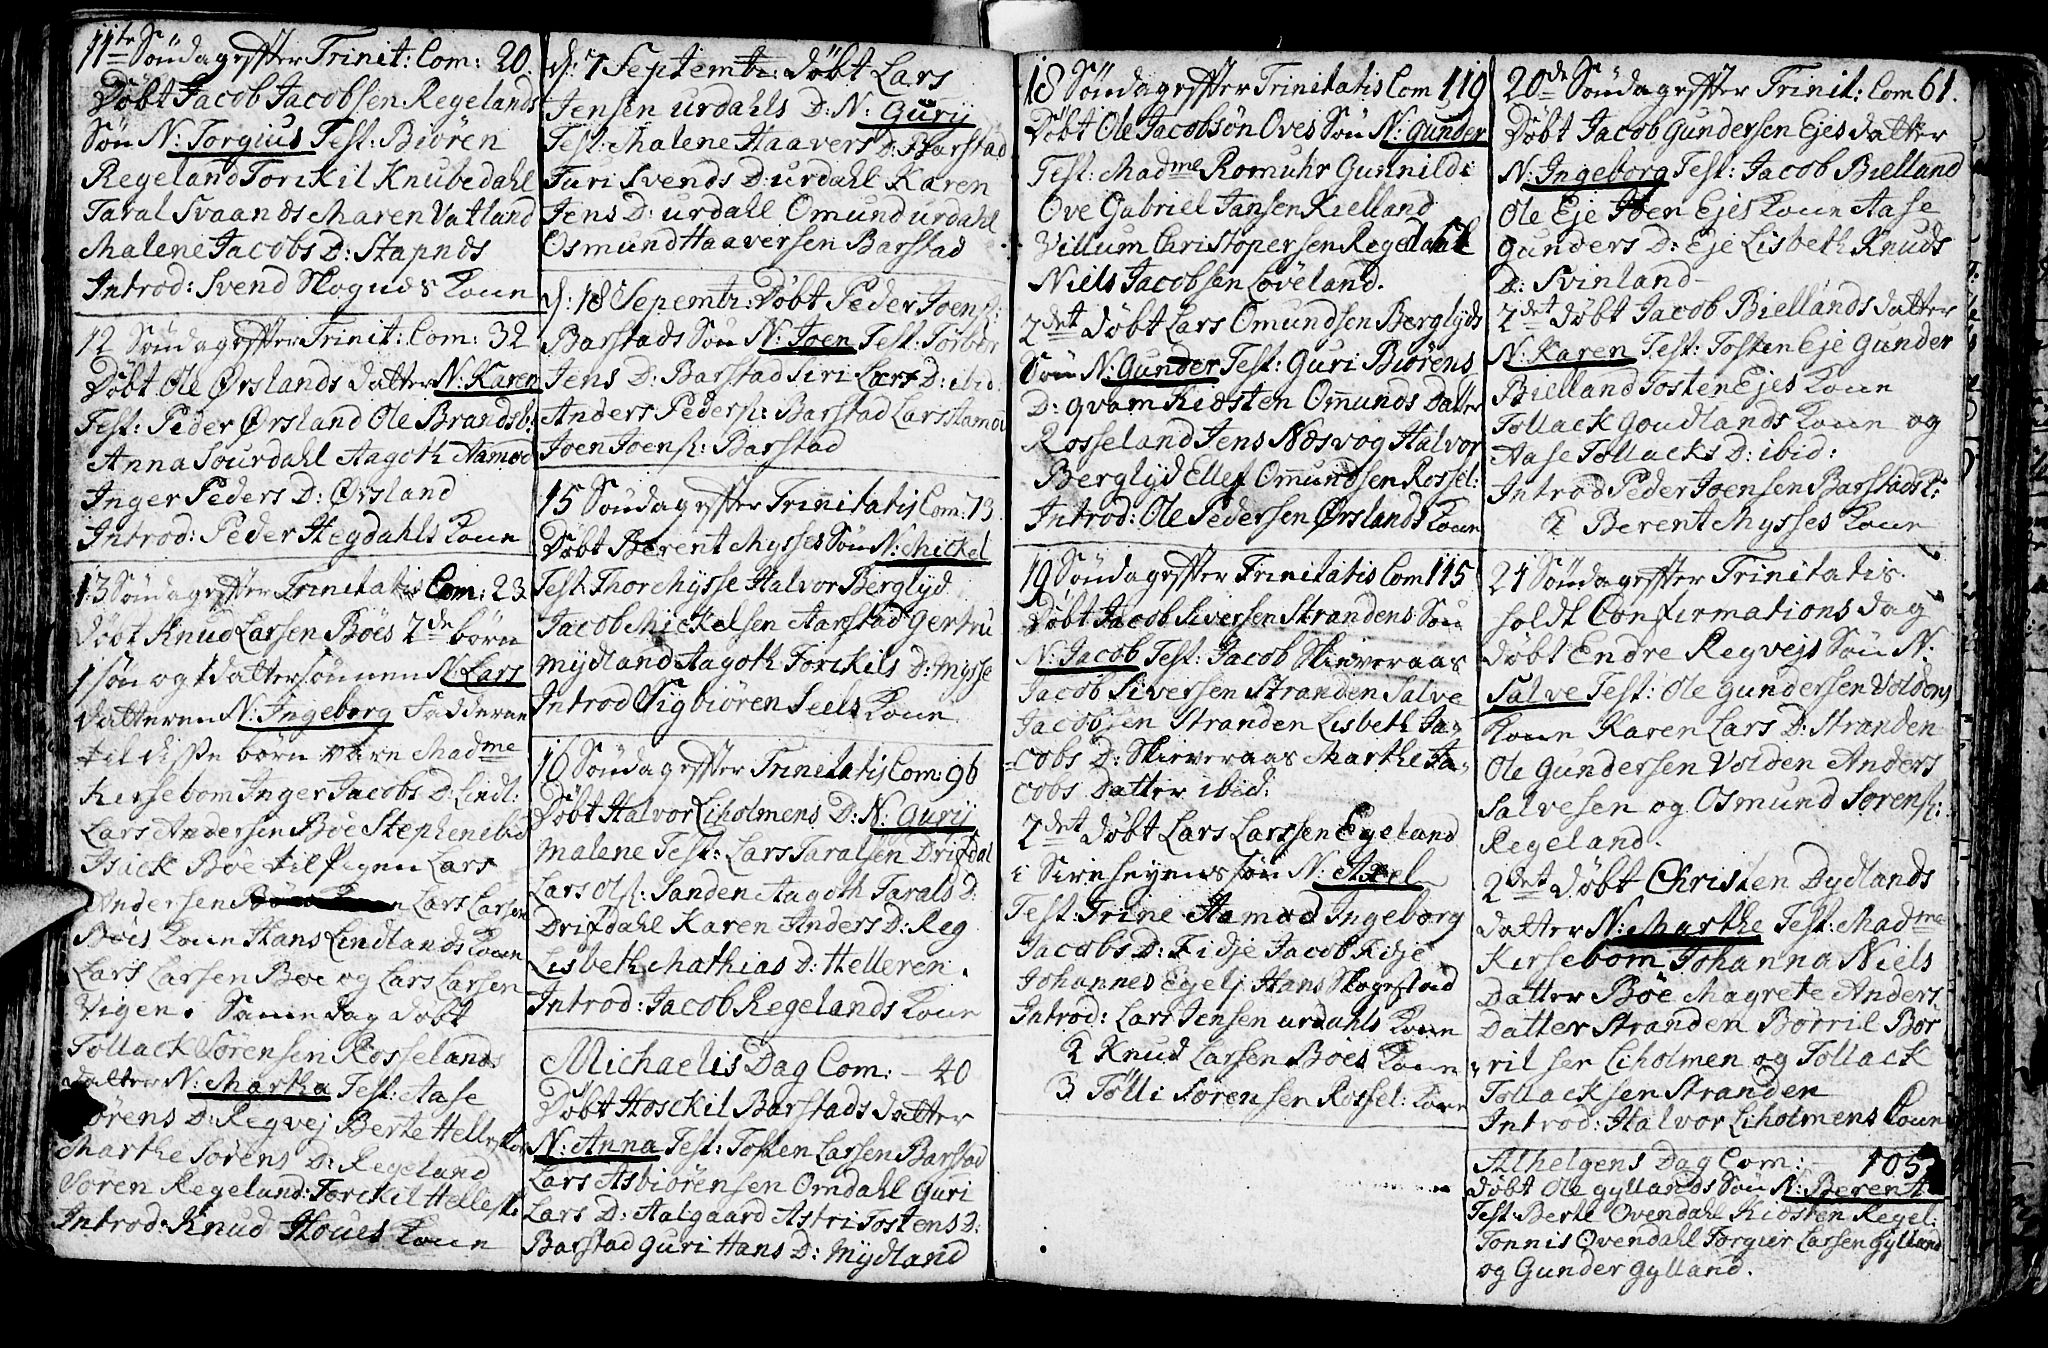 11te Söndag efter Trinit: Com: 20
Döbt Jacob Jacobsen Regelands
Sön N: Torgius Test: Biören
Regeland Torkil Knubedahl
Taral Svaands Maren Vatland
Malene Jacobs D: Stapnes
Introd: Svend Skoguds Kone
12 Söndag efter Trinit: Com: 32
Döbt Ole Ørslands datter N: Karen
Test: Peder Ørsland Ole Brandsb:
Anna Sourdahl Aagoth Aamod
Inger Peders D: Ørsland
Introd: Peder Hegdahls Kone
13 Söndag efter Trinitatis Com: 23
döbt Knud Larsen Böes 2de börn
1 sön og 1 datter sönnen N: Lars
datteren N: Ingeborg Fadderne
til disse börn vare Madme
Kersebom Inger Jacobs D: Lindl:
Lars Andersen Böe Stephen ibid
Isack Böe til Pigen Lars
Andersen Lars Larsen
Böes Kone Hans Lindlands Kone
Lars Larsen Böe og Lars Larsen
Vigen. Samme dag döbt
Tollack Sörensen Rosselands
datter N: Martha Test: Aase
Sörens D: Regvej Berte Hellesk
Marthe Sörens D: Regeland
Sören Regeland: Torckil Helles
Introd: Knud Houes Kone
d: 7 Septembr: döbt Lars
Jensen urdahls D: N: Gurij
Test: Malene Haavers D: Barstad
Turi Svends D: urdahl Karen
Jens D: urdahl Omund urdahl
Osmund Haaversen Barstad
d: 18 Sepembr: Döbt Peder Joens:
Barstads Sön N: Joen Test: Torbör
Jens D: Barstad Siri Lars D: ibid
Anders Peders: Barstad Lars Hamou
Joen Joens: Barstad
15 Söndag efter Trinitatis Com: 73
Döbt Berent Mysses Sön N: Mickel
Test: Thore Mysse Halvor Berglyd
Jacob Mickelsen Aarstad Gertru
Mydland Aagoth Torckils D: Mysse
Introd Sigbiören Seels Kone
16 Söndag efter Trinitatis Com: 96
Döbt Halvor Liholmens D: N: Gurij
Malene Test: Lars Taralsen Drifdal
Lars Ols: Sanden Aagoth Tarals D:
Drifdahl Karen Anders D: Reg
Lisbeth Mathias D: Helleren.
Introd: Jacob Regelands Kone
Michaelis Dag Com: 40
Döbt Hosckil Barstads datter
N: Anna Test: Tosten Larsen Barstad
Lars Asbiörensen Omdahl Guri
Lars D: Aalgaard Astri Tostens D:
Barstad Guri Hans D: Mydland
18 Söndag efter Trinitatis Com 119
Döbt Ole Jacobsön Oves Sön N: Gunder
Test: Madme Romuhr Gunnild
Ove Gabriel Jansen Kielland
Villum Christopersen Regeland
Niels Jacobsen Löveland.
2det döbt Lars Omundsen Berglyds
Sön N: Gunder Test: Guri Biörens
D: qvam Kidsten Omunds Datter
Rosseland Jens Næsvog Halvor
Berglyd Ellef Omundsen Rossel:
Introd: Ole Pedersen Ørslands Kone
19 Söndag efter Trinitatis Com 115
Döbt Jacob Siversen Strandens Sön
N: Jacob Test: Jacob Skieveraas
Jacob Siversen Stranden Salve
Jacobsen Stranden Lisbeth Ja-
cobs D: Skieveraas Marthe Ja-
cobs Datter ibid:
2det döbt Lars Larssen Egeland
i Sireheyens sön N: Axel
Test: Trine Aamod Ingeborg
Jacobs D: Fidje Jacob Fidje
Johannes Egelj Hans Skogestad
Introd: Lars Jensen urdahls Kone
2 Knud Larsen Böes Kone
3 Tölli Sörensen Rossel: Kone
20de Söndag efter Trinit: Com 61.
Döbt Jacob Gundersen Ejes datter
N: Ingeborg Test: Jacob Bielland
Ole Eje Joen Ejes Kone Aase
Gunders D: Eje Lisbeth Knuds
D: Svinland
2det döbt Jacob Biellands datter
N: Karen Test: Tosten Eje Gunder
Bielland Tosten Ejes Kone
Tollack Goudlands Kone og
Aase Tollacks D: ibid:
Introd Peder Joensen Barstads K:
2 Berent Mysses Kone
21 Söndag efter Trinitatis
holdt Confirmations dag
döbt Endre Regvejs Sön N:
Salve Test: Ole Gundersen Voldens
Kone Karen Lars D: Stranden
Ole Gundersen Volden Anders
Salvesen og Osmund Sörens:
Regeland.
2det döbt Christen Dydlands
datter N: Marthe Test: Madme
Kersebom Johanna Niels
Datter Böe Magrete Anders
Datter Stranden Börril Bör
rilsen Liholmen og Tollack
Tollacksen Stranden
Introd: Halvor Liholmens Kone
Alhelgens Dag Com: 105
döbt Ole Gyllands Sön N: Berent
Test: Berte Ovendahl Kidsten Regel:
Tonnis Ovendahl Torgier Larsen Gylland
og Gunder Gylland.